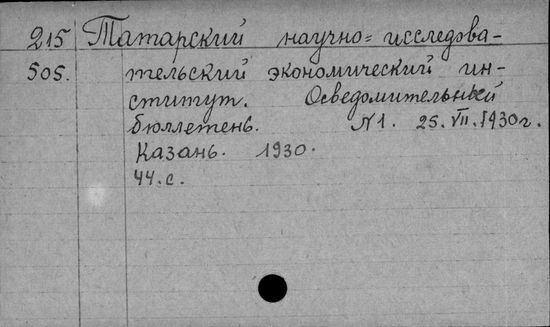 215 Татарский научно=исследова-
505. тельский экономический ин-
ститут. Осведомительный
бюллетень. N1. 25. VII. 1930 г.
Казань. 1930.
44. с.